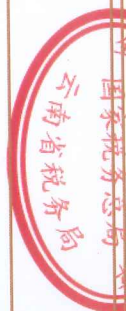 国家税务总局
云南省税务局